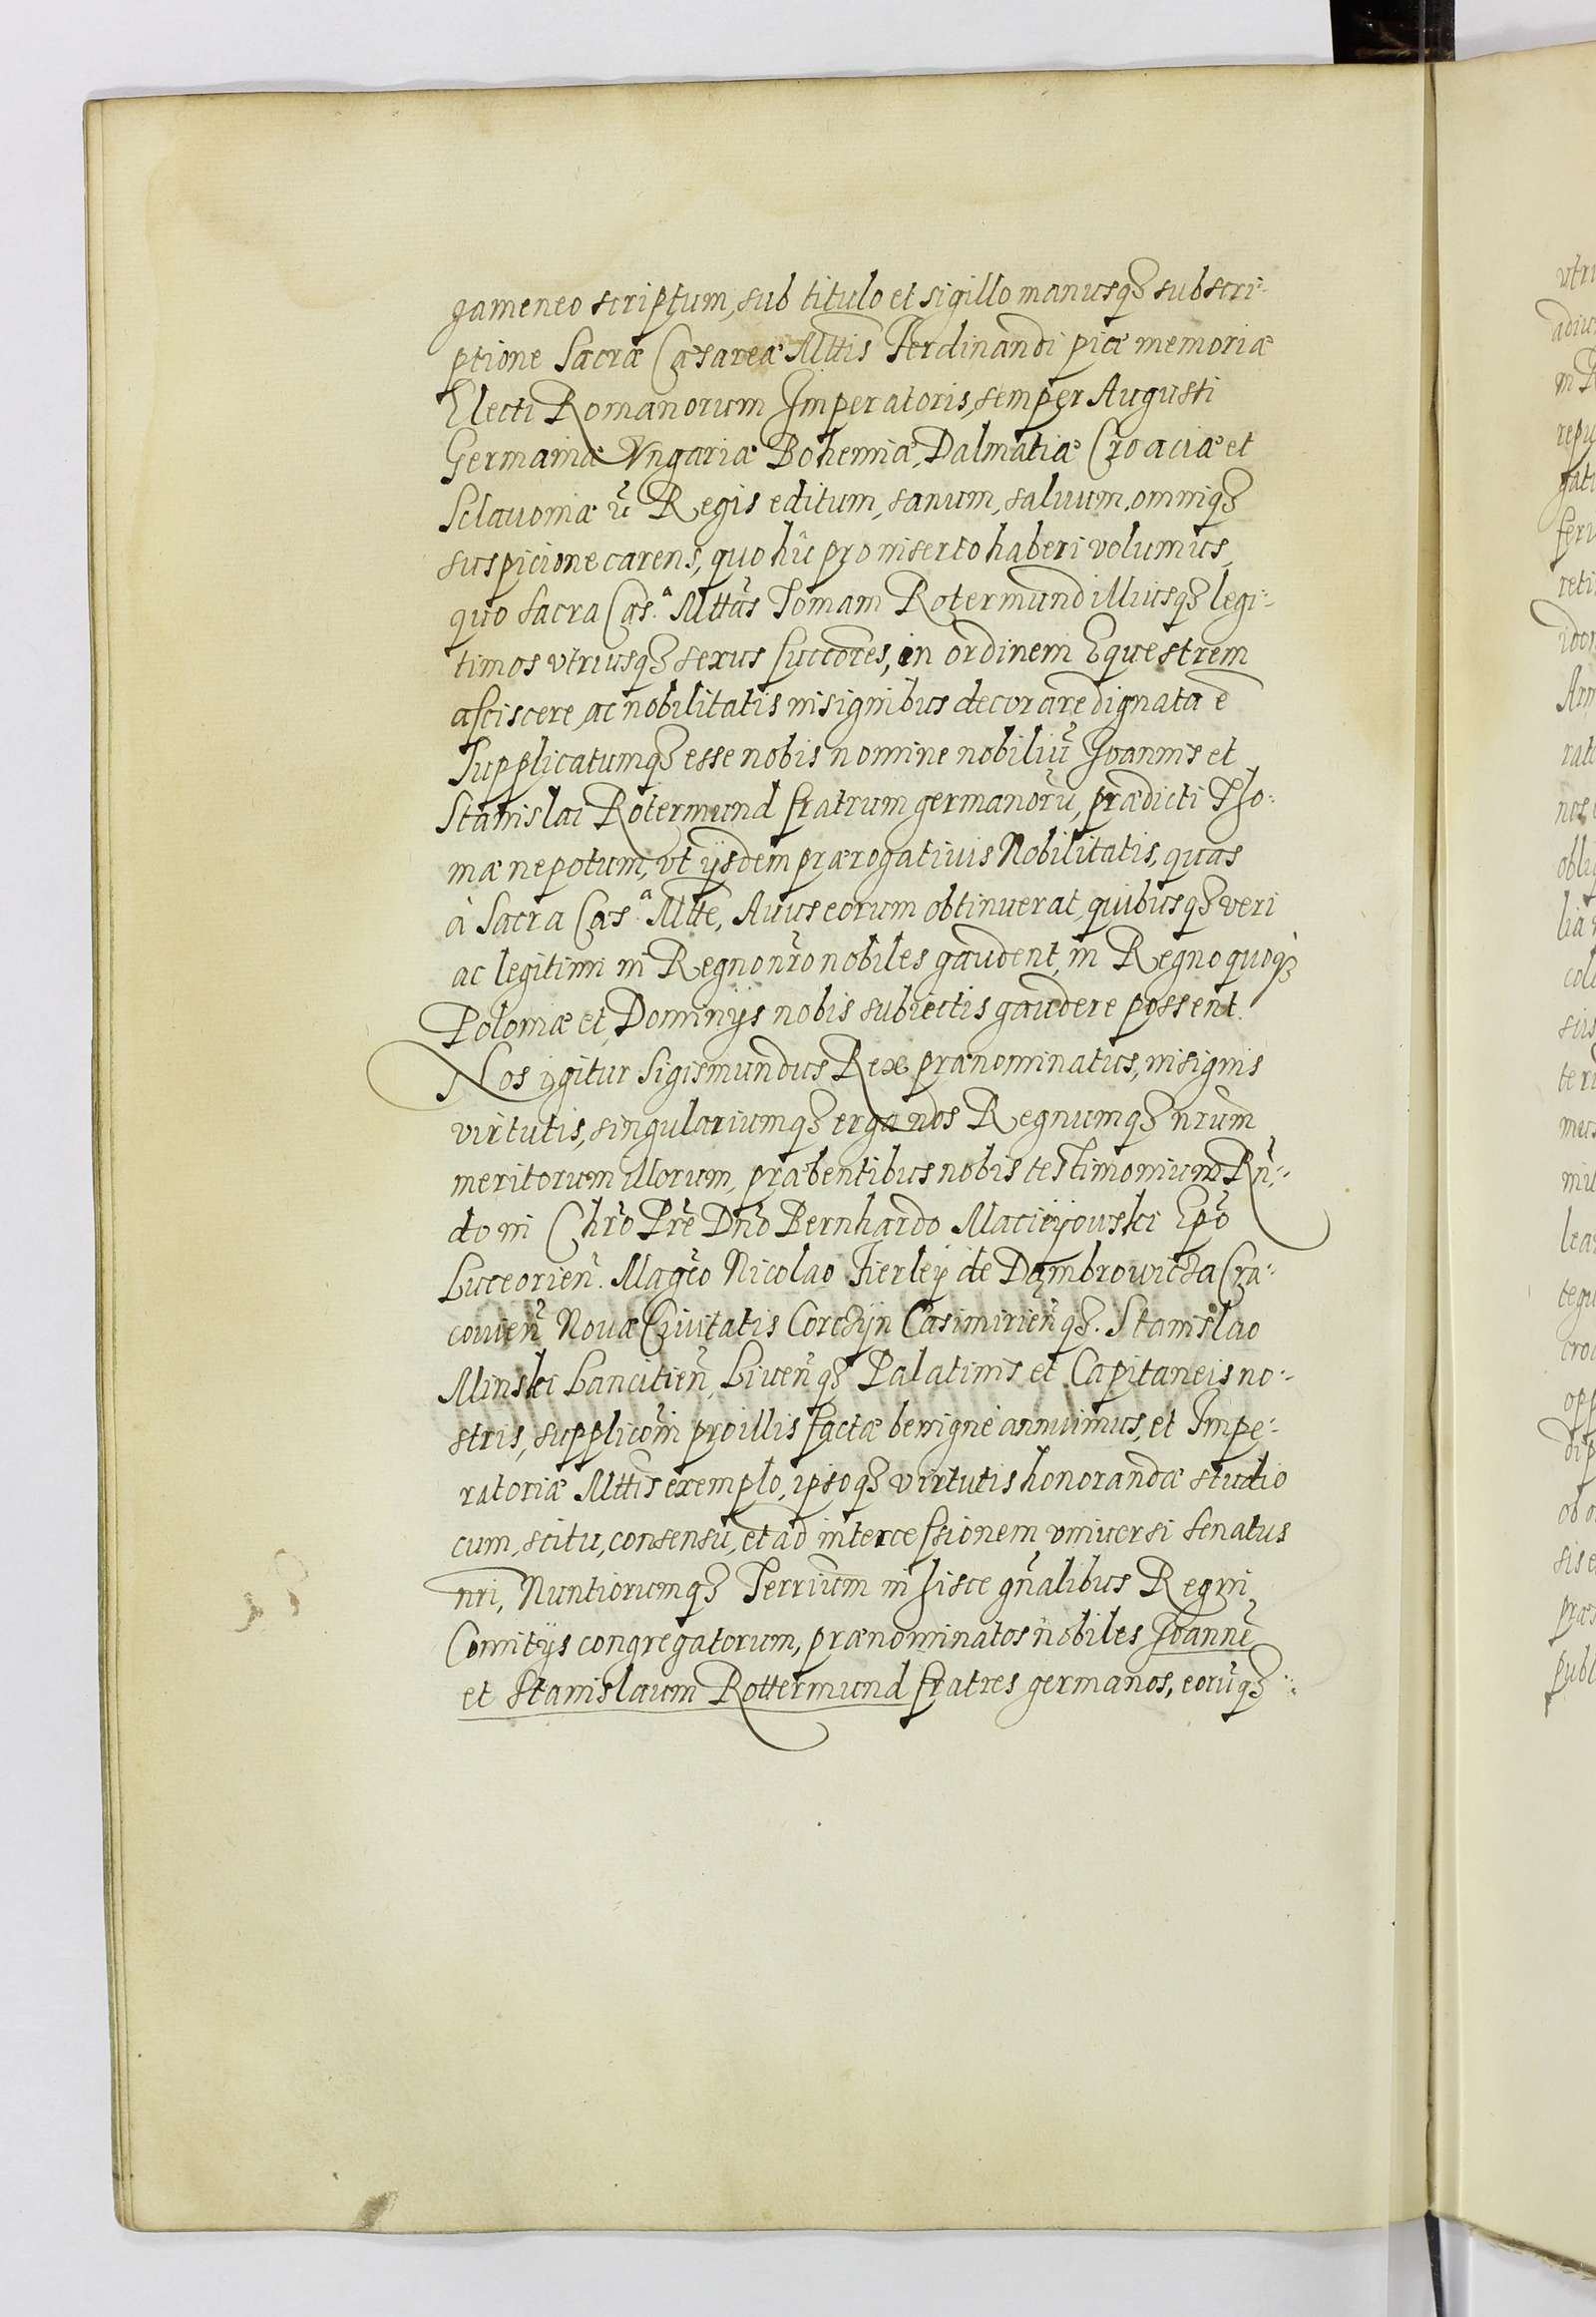 gameneo scriptum, sub titulo et sigillo manusq3 subscri-
ptione Sacræ Cæsareæ Mttis Ferdinandi piæ memoriæ
Electi Romanorum Imperatoris, semper Augusti
Germaniæ Vngariæ Bohemiæ, Dalmatiæ Croaciæ et
Sclavoniæ Regis editum, sanum, saluum, omniq3
suspicione carens, quo hic pro inserto haberi volumus,
quo Sacra Cæs.ª Mttas Tomam Rotermund illiusq3 legi-
timos vtriusq3 sexus succores, in ordinem Equestrem
asciscere, ac nobilitatis insignibus decorare dignata ē
Supplicatumq3 esse nobis nomine nobiliū Joannis et
Stanislai Rotermund fratrum germanorū, prædicti Tho-
mæ nepotum, vt ijsdem prærogativis Nobilitatis, quas
à Sacra Cæs.ª Mtte, Auus eorum obtinuerat, quibusq3 veri
ac legitimi in Regno nro nobiles gaudent, in Regno quoq3
Poloniæ et Dominijs nobis subiectis gaudere possent.
Nos igitur Sigismundus Rex prænominatus, insignis
virtutis, singulariumq3 erga nos Regnumq3 nrum
meritorum illorum, præbentibus nobis testimonium Rn-
do in Chro Pre Dno Bernhardo Macieÿowski Epo
Luceorien. Magco Nicolao Fierleÿ de Dambrowicza Cra-
couien Nouæ Ciuitatis Corczÿn Casimirienq3. Stanislao
Minski Lancitien, Liuenq3 Palatinis et Capitaneis no-
stris, supplicōni pro illis factæ benignè annuimus, et Impe-
ratoriæ Mttis exemplo, ipsoq3 virtutis honorandæ studio
cum, scitu, consensu, et ad intercessionem vniuersi Senatus
nri, Nuntiorumq3 Terrium in hisce gnalibus Regni
Comitijs congregatorum, prænominatos nobiles Joannē
et Stanislaum Rottermund fratres germanos, eorūq3